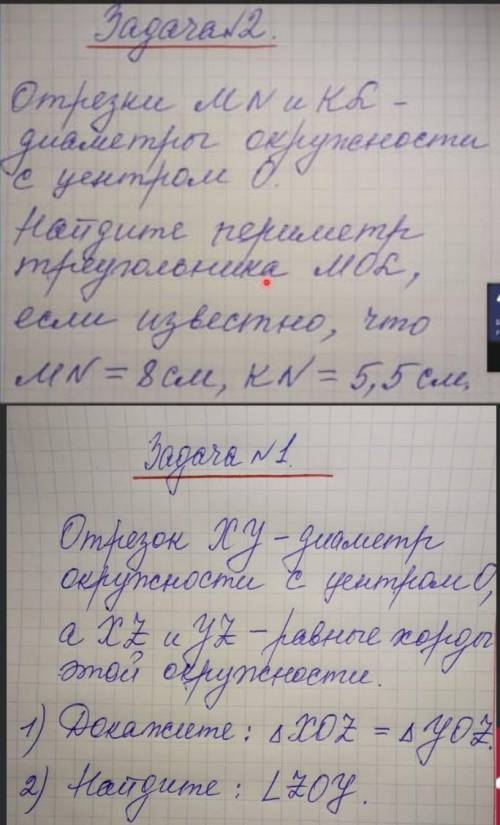 Задача №2.
Отрезки MN и KL –
диаметры окружности
с центром О.
Найдите периметр
треугольника MOL,
если известно, что
MN = 8 см, KN = 5,5 см.
Задача №1.
Отрезок XY – диаметр
окружности с центром О,
а XZ и YZ – равные хорды
этой окружности.
1) Докажите: △XOZ = △YOZ.
2) Найдите: ∠ZOY.